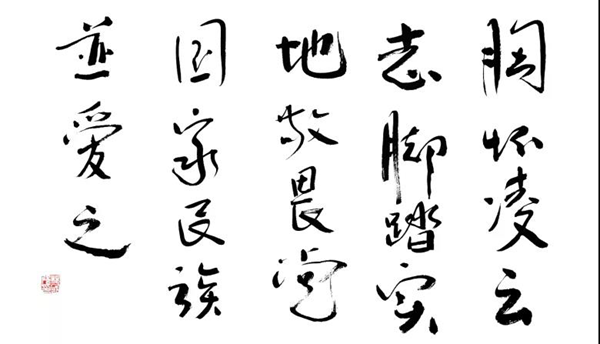 胸怀凌云
志脚踏实
地敬畏党
国家民族
並愛之